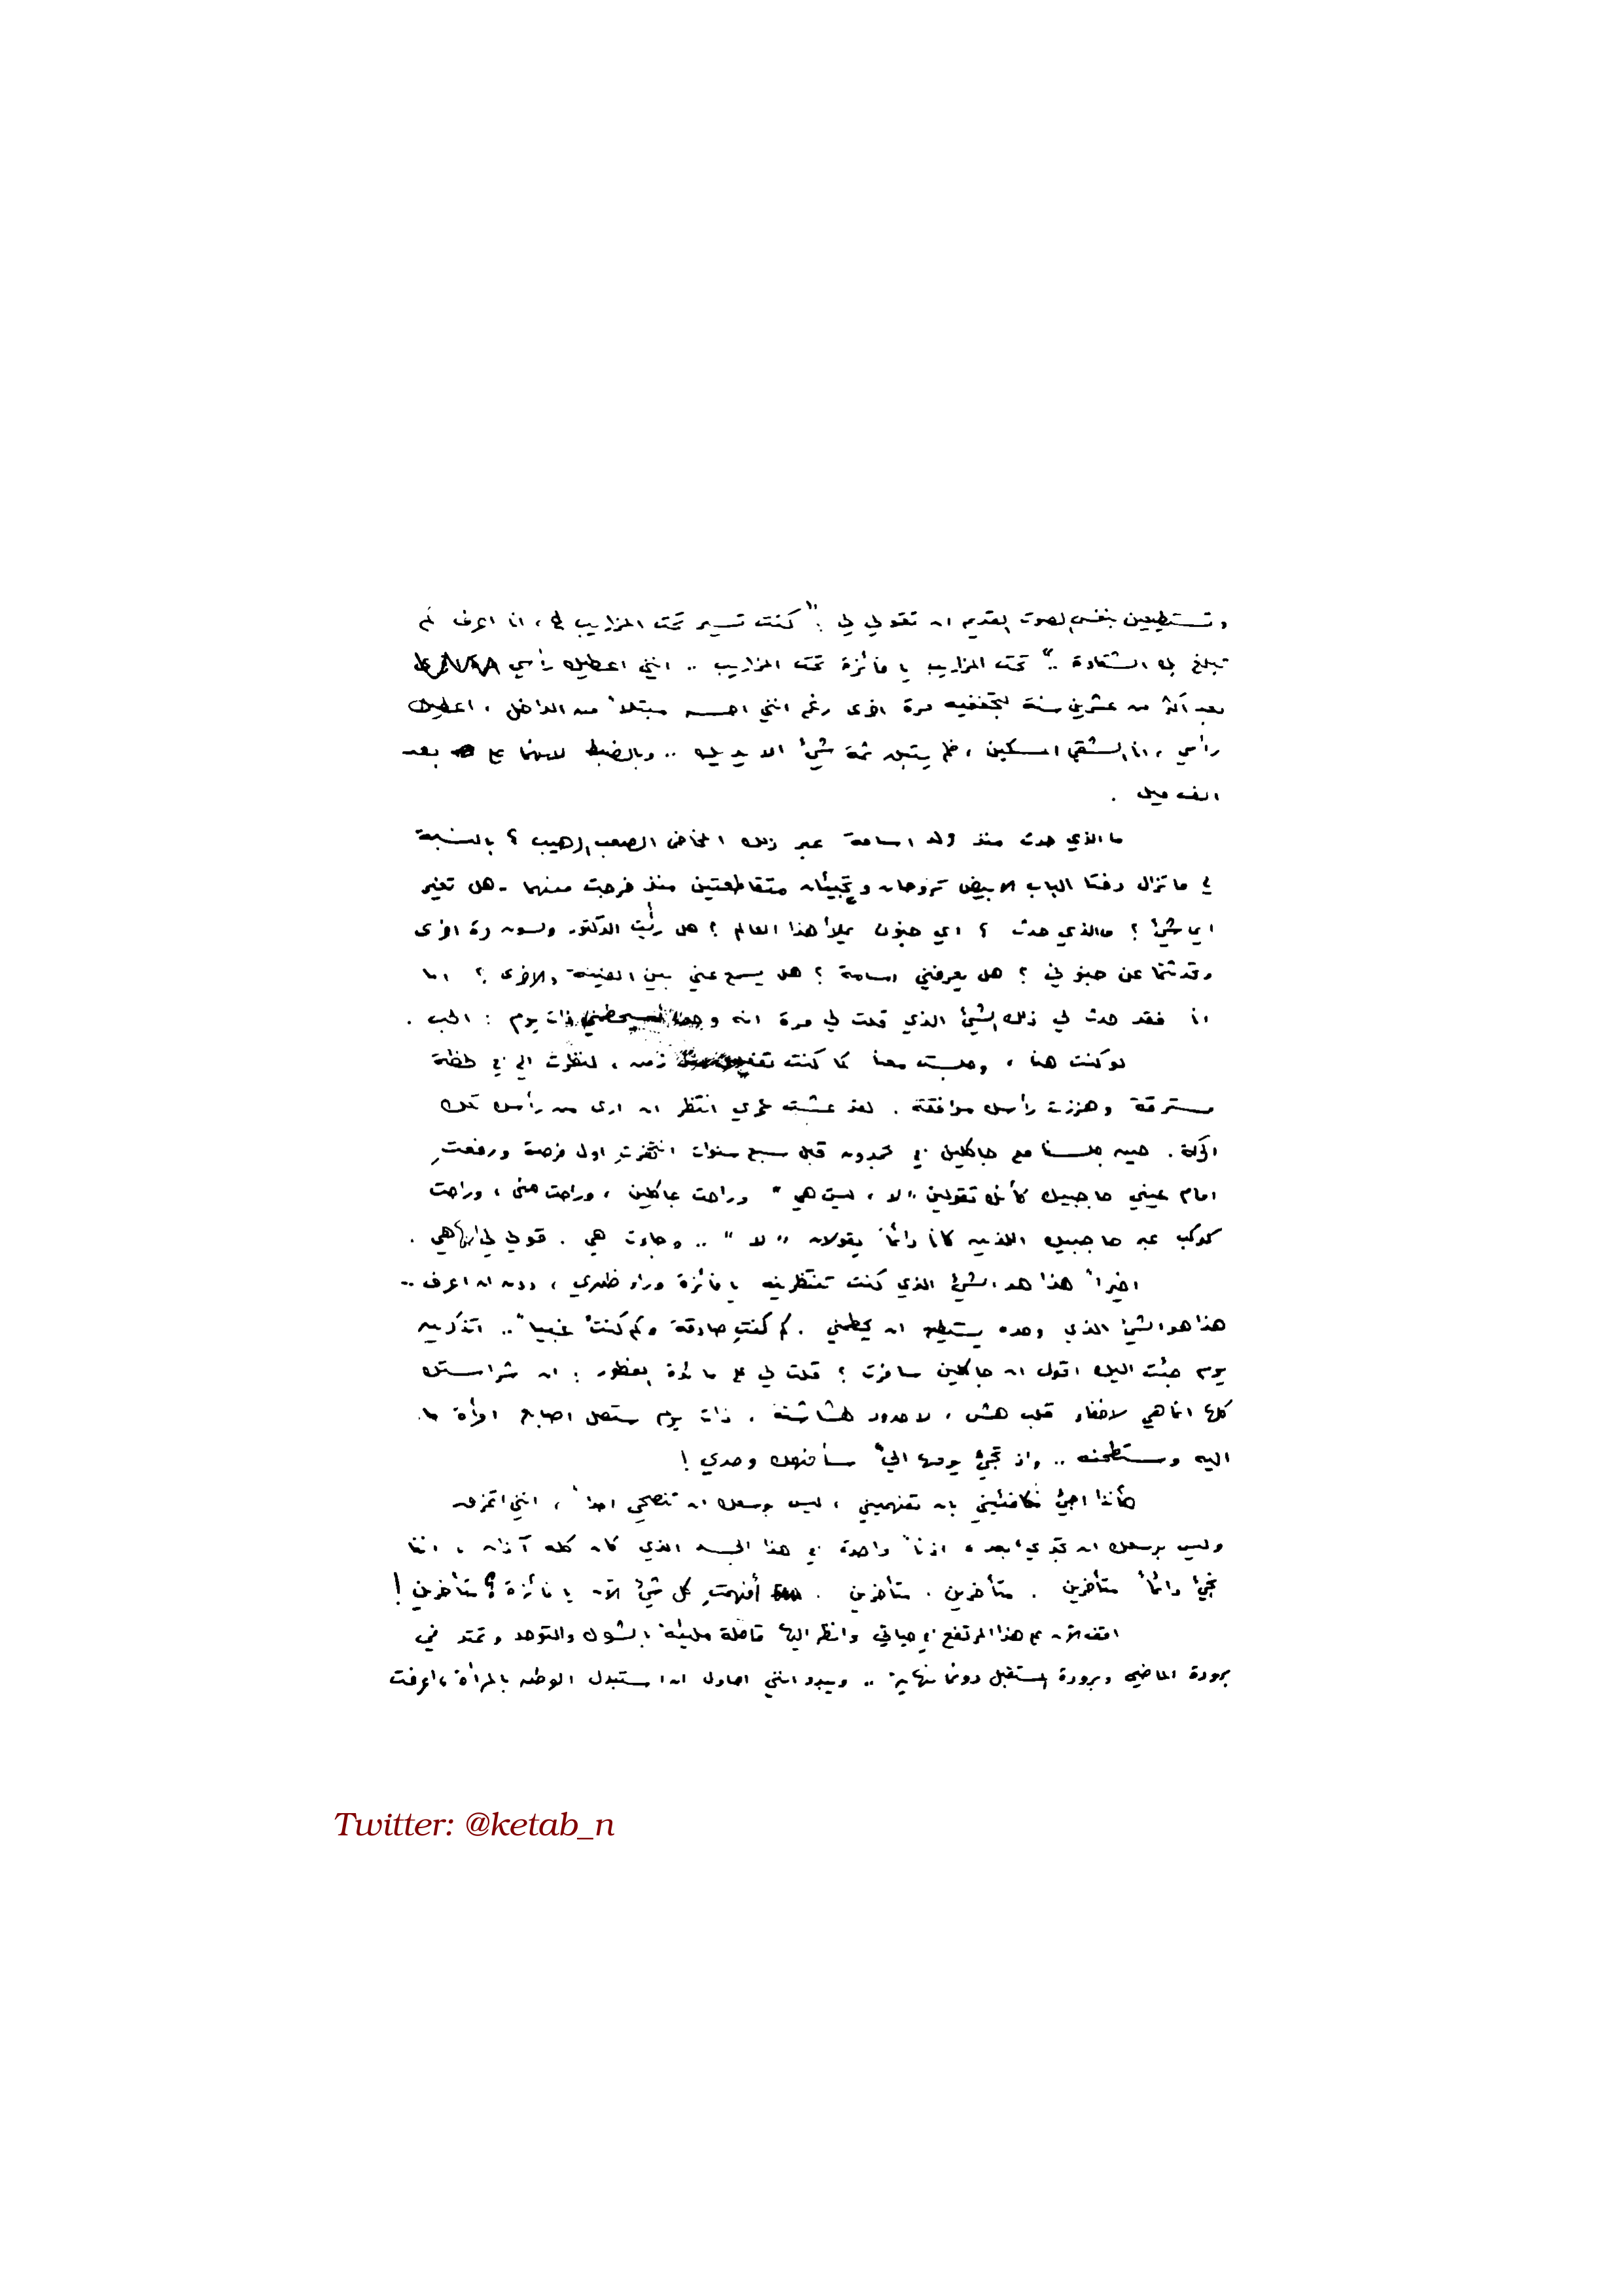 وتستطيعين بنفس الصوت القديم ان تقولي لي : "كنت تسير تحت المزاريب ، انا اعرف لم
تبلغ بك الشقاوة .." تحت المزاريب يا فائزة تحت المزاريب .. انني اعطيك رأسي
بعد اكثر من عشرين سنة لتجففيه مرة اخرى رغم انني احسه مبتلاً من الداخل ، اعطيك
رأسي ، انا الشقي المسكين ، فلم يتبق ثمة شيء الا يديك .. وبالضبط لانهما على بعد
الف ميل .
ما الذي حدث منذ ولد اسامة عبر ذلك المخاض الصعب الرهيب ؟ بالنسبة
لي ما تزال دفتا الباب الابيض تروحان وتجيئان متقاطعتين منذ خرجت منهما - هل تغير
اي شيء ؟ ما الذي حدث ؟ اي جنون يملأ هذا العالم ؟ هل رأيت الدكتور ولسون مرة اخرى
وحدثتما عن جنوني ؟ هل يعرفني اسامة ؟ هل يسمع عني بين الفينة والاخرى ؟ اما
انا فقد حدث لي ذلك الشيء الذي قلت لي مرة انه وحده سيحطمني ذات يوم : الحب .
لو كنت هنا ، وجلست معنا كما كنت تفعلين زمن ، لنظرت الي في لحظة
مسترقة وهززت رأسك موافقة . لقد عشت عمري انتظر ان ارى من رأسك تلك
الحركة . حين جلسنا مع جاكلين في حمدون قبل سبع سنوات انتهزتِ اول فرصة ورفعتِ
امام عيني حاجبيك كأنك تقولين "لا ، ليست هي" وراحت جاكلين ، وراحت منى ، وراحت
كوكب عبر حاجبيك اللذين كانا دائماً يقولان "لا" .. وجاءت هي . قولي لي انها هي .
اخيراً هذا هو الشيء الذي كنت تنتظرينه يا فائزة وراء ظهري ، دون ان اعرف ..
هذا هو الشيء الذي وحده يستطيع ان يحطمني . كم كنتِ صادقة وكم كنتُ غبياً .. اتذكرين
يوم جئت اليك اقول ان جاكلين سافرت ؟ قلت لي على مائدة الفطور : ان شراستك
كلها انما هي لاخفاء قلب هش ، لا حدود لهشاشته ، ذات يوم ستصل اصابع امرأة ما
اليه وستطحنه .. واذ تجيء يومها اليّ سأفهمك وحدي !
هأنذا اجيء فكافئيني بان تفهميني ، ليس بوسعك ان تنصحي احداً ، انني اتمزق
وليس بوسعك ان تجدي بعد اذناً واحدة في هذا الجسد الذي كان كله آذان ، اننا
نجيء دائماً متأخرين . متأخرين . متأخرين . أفهمتِ كل شيء الآن يا فائزة ؟ متأخرين !
اقف الآن على هذا المرتفع في حياتي وانظر اليها قاحلة مليئة بالشوك والتوحد وتمتد في
برودة الماضي وبرودة المستقبل دونما نهاية .. ويبدو انني احاول ان استبدل الوطن بالمرأة ، اعرفت
Twitter: @ketab_n